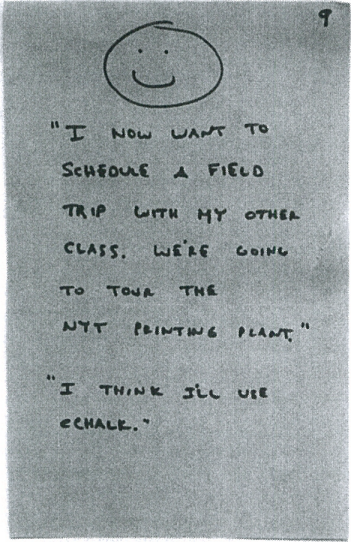 9
"I NOW WANT TO
SCHEDULE A FIELD
TRIP WITH MY OTHER
CLASS. WE'RE GOING
TO TOUR THE
NYT PRINTING PLANT."
"I THINK I'LL USE
eCHALK."